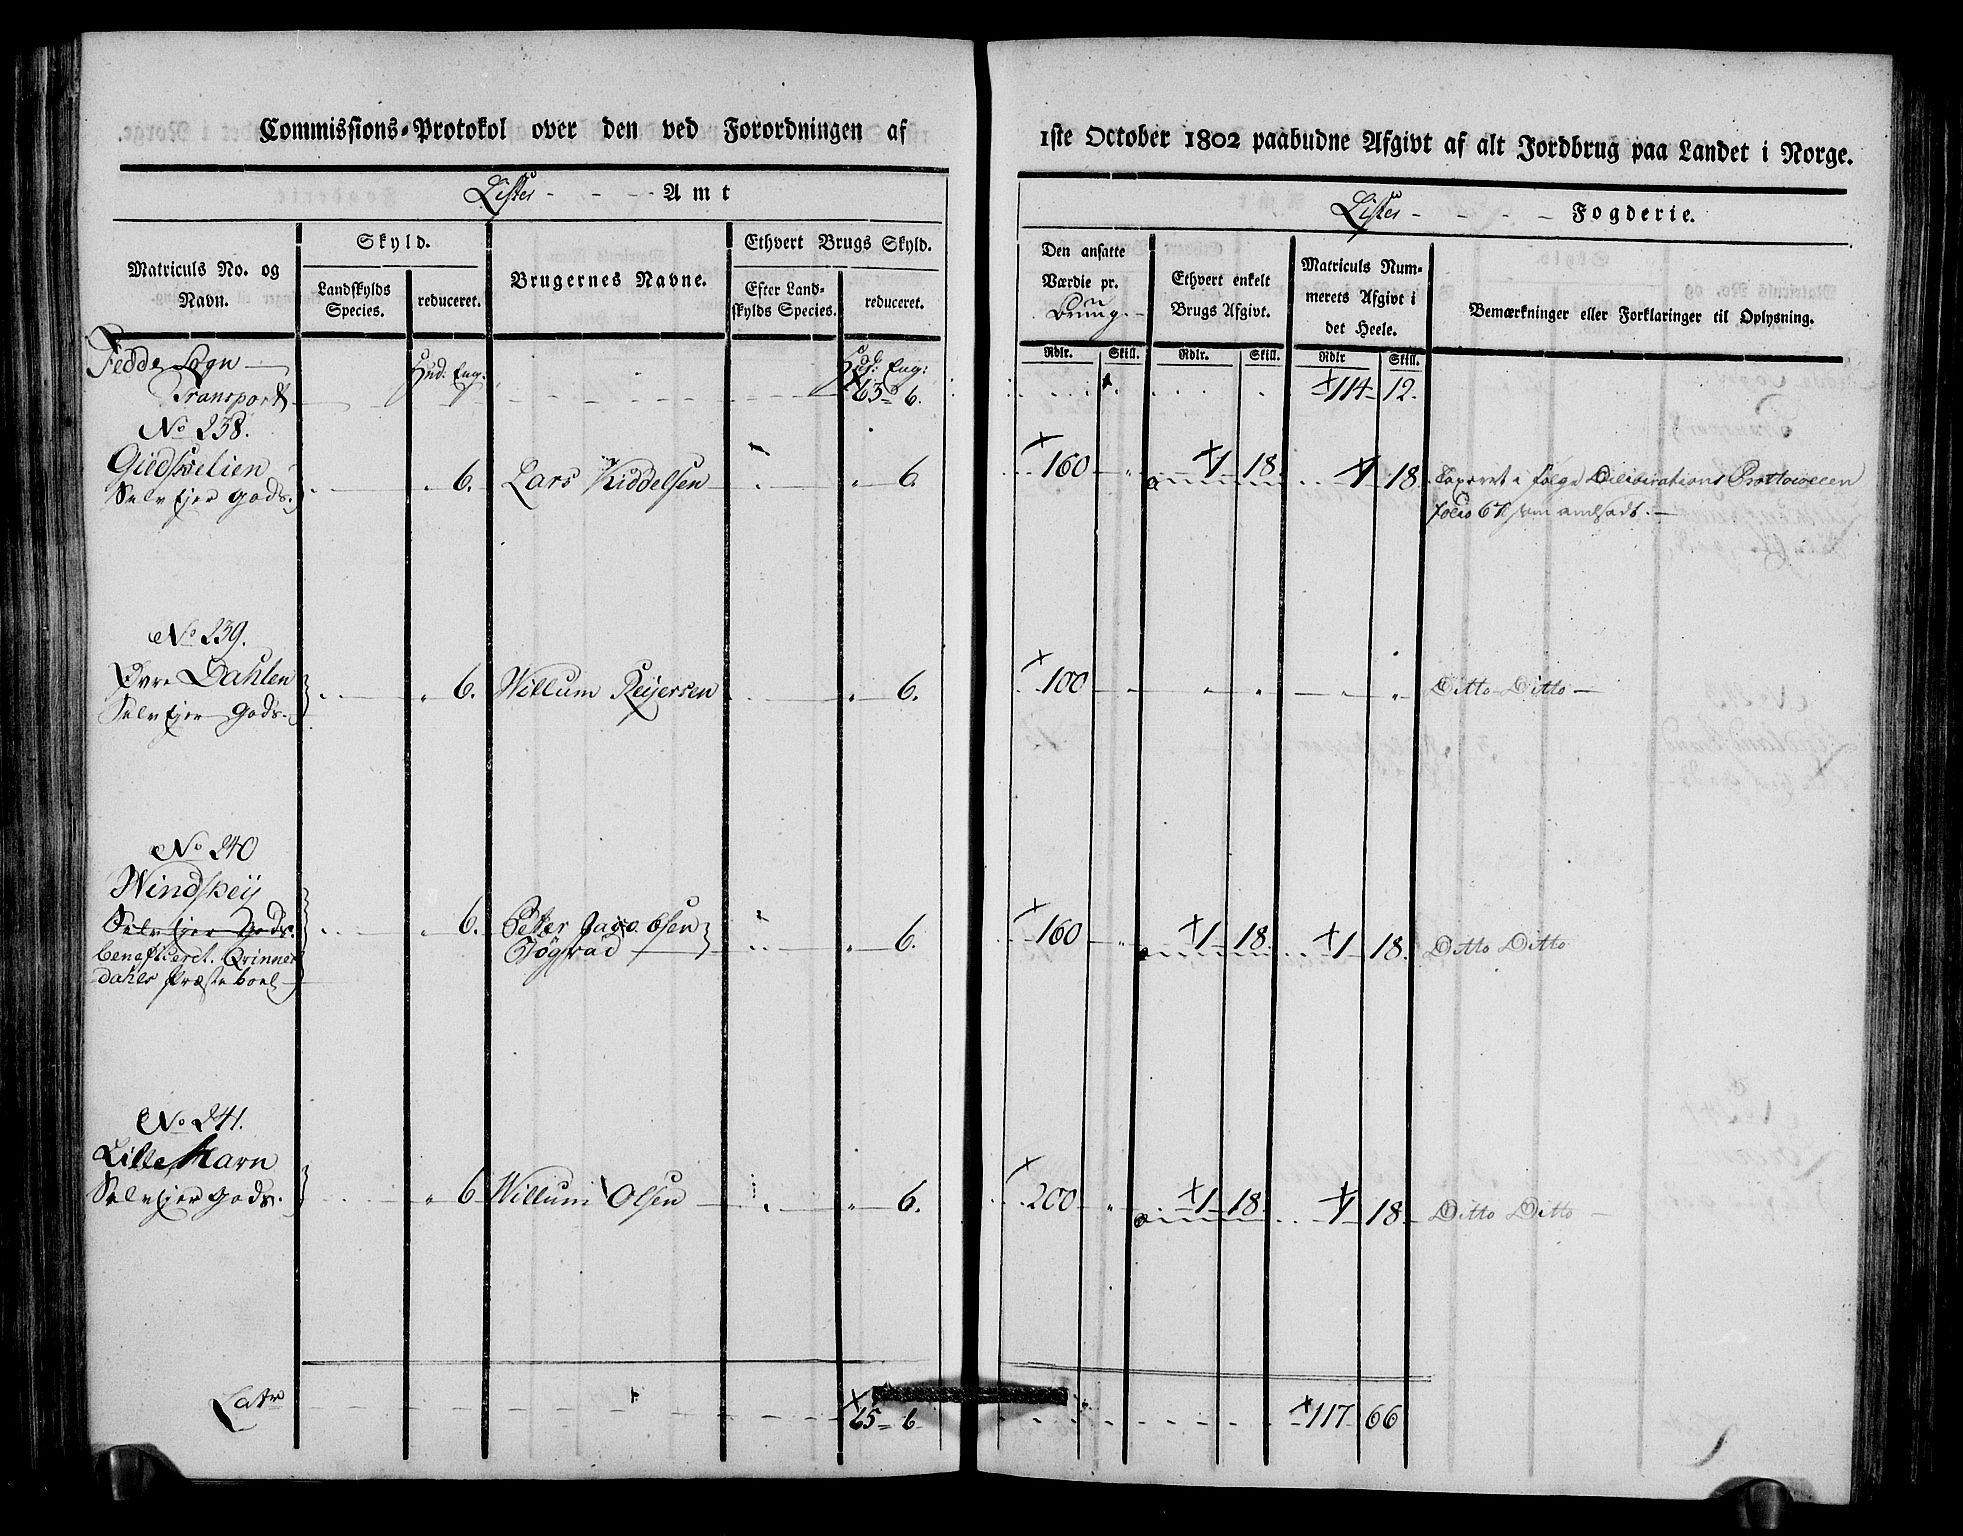 Commissions-Protokol over den ved Forordningen af
1ste October 1802 paabudne Afgivt af alt Jordbrug paa Landet i Norge.
Lister - - - Amt
Lister - - - - Fogderie.
Matriculs No. og
Navn.
Skyld.
Landskylds
Species.
reduceret.
Brugernes Navne.
Ethvert Brugs Skyld.
Efter Land-
skylds Species.
reduceret.
Den ansatte
Værdie pr.
Brug.
Ethvert enkelt
Brugs Afgivt.
Matriculs Num-
merets Afgivt i
det Heele.
Bemærkninger eller Forklaringer til Oplysning.
Rdlr. Skill. Rdlr. Skill. Rdlr Skill.
Fedde Sogn
Hud: Eng: Hud: Eng:
Transport 65 6. 114 12.
No 238.
Giedsvelien
Selv Ejer Gods. 6. Lars Kiddelsen 6. 160 1 18. 1 18. Taxeret i følge Deliberations Prottocollen
folio 67 som andsadt.
No 239.
Øvre Dahlen
Selv Ejer Gods. 6. Willum Reijersen 6. 100 Ditto Ditto
No 240
Windskeij
Selv Ejer Gods. 6. Peder Jacobsen
Føgrad 6. 160 1 18. 1 18. Ditto Ditto
beneficeret Qvinnes
dahls Præste boel
No 241.
Lille Harn
Selv Ejer Gods. 6 Willum Olsen 6. 200 1 18. 1 18. Ditto Ditto
Latr 65 6 117 66